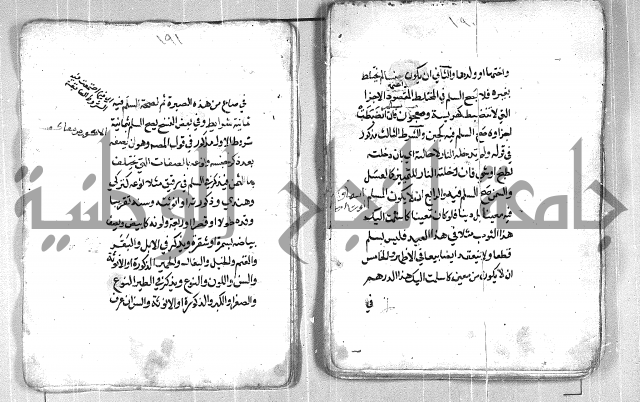 ١٩٠
واختها او ولدها والثاني ان يكون جنسا لم يختلط
بغيره فلا يصح السلم في المختلط المقصود الاجزا
التي لا تنضبط كهريسة ومعجون فان انضبطت
اجزاوه صح السلم فيه كجبن والشرط الثالث مذكور
في قوله ولم تدخله النار لاحالته اي بان دخلته
لطبخ او شي فان دخلته النار للتمييز كالعسل
والسمن صح السلم فيه والرابع ان لا يكون المسلم
فيه معينا بل دينا فلو كان معينا كاسلمت اليك
هذا الثوب مثلا في هذا العبد فليس بسلم
قطعا ولا ينعقد ايضا بيعا في الاظهر والخامس
ان لا يكون من معين كاسلمت اليك هذا الدرهم
في
١٩١
في صاع من هذه الصبرة ثم لصحة السلم فيه
ثمانية شرايط وفي بعض النسخ ويصح السلم بثمانية
شروط الاول مذكور في قول المصنف وهو ان يصفه
بعد ذكر جنسه ونوعه بالصفات التي يختلف
بها الثمن فيذكر في السلم في رقيق مثلا نوعه كتركي
وهندي وذكورته او انوثته وسنه تقريبا
وقده طولا او قصرا او ربعة ولونه كابيض ويصف
بياضه بسمرة او شقرة ويذكر في الابل والبقر
والغنم والخيل والبغال والحمير الذكورة والانوثة
والسن واللون والنوع ويذكر في الطير النوع
والصغر والكبر والذكورة او الانوثة والسن ان عرف
جامعة النجاح الوطنية